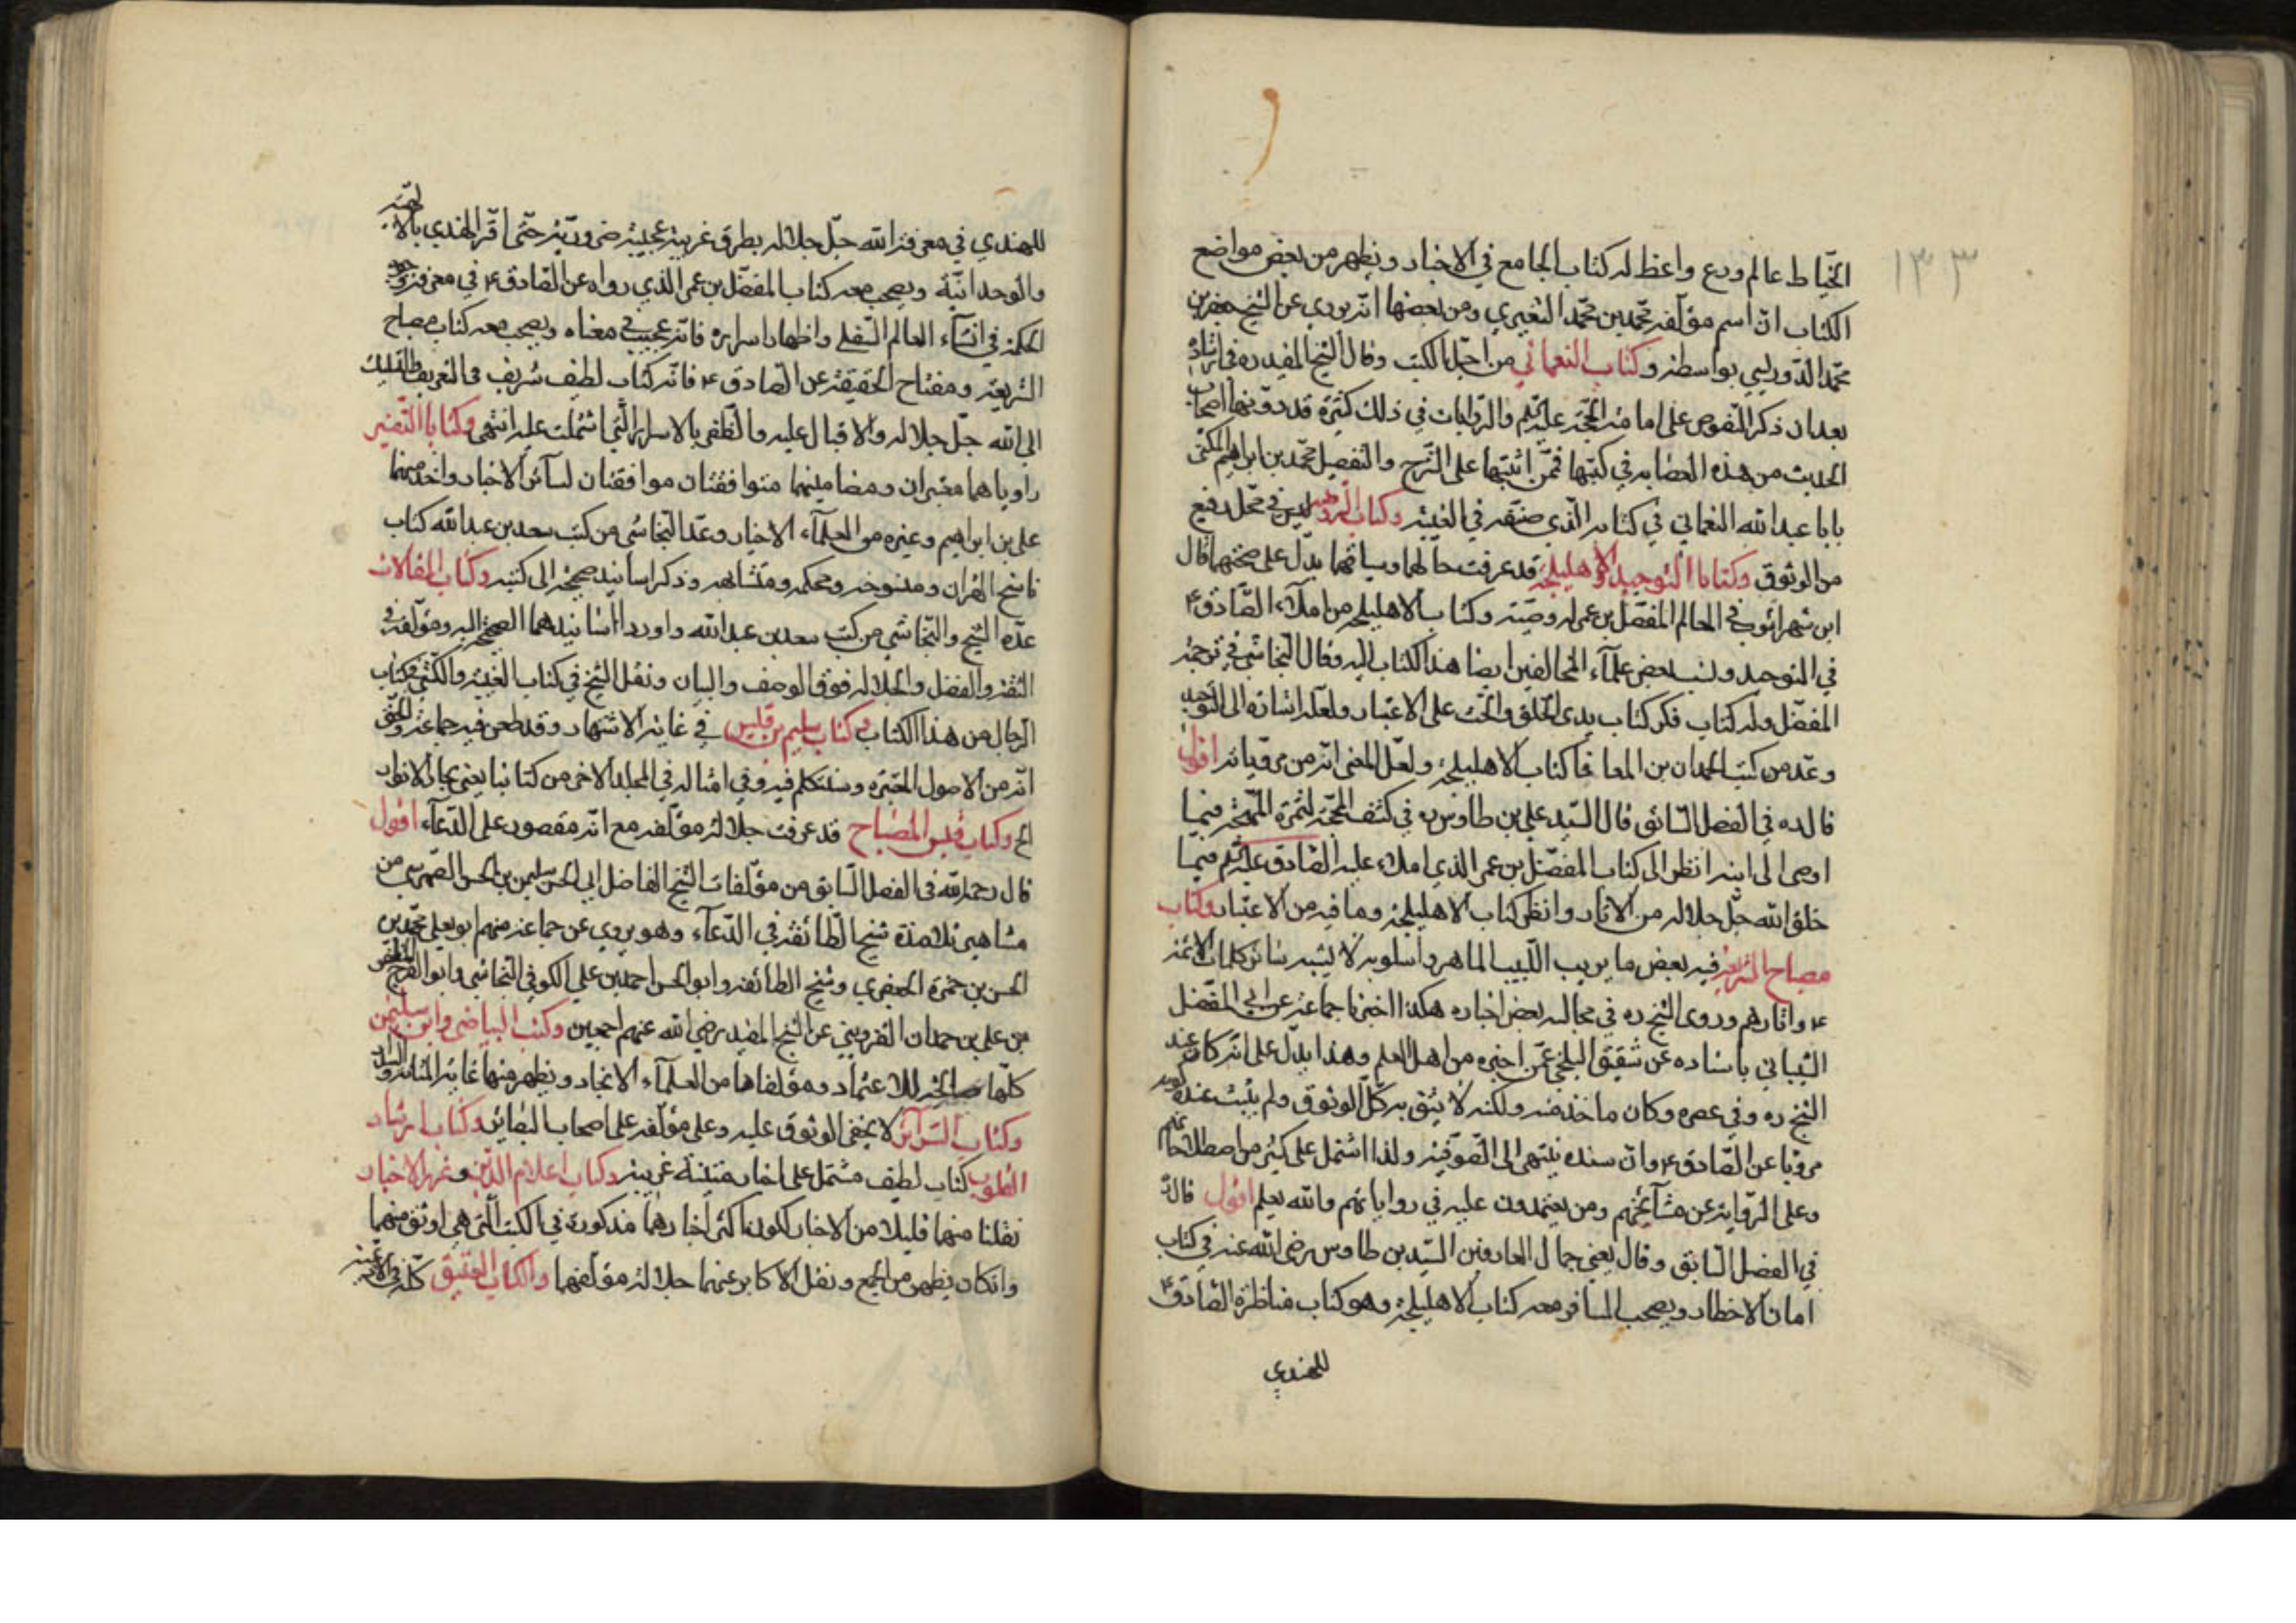 ١٣٣
الخيّاط عالم ورع واعظ له كتاب الجامع في الاخبار ويظهر من بعض مواضع
الكتاب انّ اسم مؤلّفه محمّد بن محمّد الشعيري ومن بعضها انّه يروي عن الشيخ جعفر بن
محمّد الدّوريستي بواسطة وكتاب النعماني من اجلّ الكتب وقال الشيخ المفيد ره في ارشاده
بعد ان ذكر النّصوص على امامة الحجّة عليه السّلم والرّوايات في ذلك كثيرة قد دوّنها اصحاب
الحديث من هذه العصابة في كتبها فممّن اثبتها على الشّرح والتفصيل محمّد بن ابراهيم المكنّى
بابا عبد الله النعماني في كتابه الذي صنّفه في الغيبة وكتاب الروضة ليس في محلّ رفيع
من الوثوق وكتابا التوحيد والاهليلجة قد عرفت حالهما وسياقهما يدلّ على صحّتهما قال
ابن شهراشوب في المعالم المفضّل بن عمر له وصيّة وكتاب الاهليلجة من املاء الصّادق ع
في التوحيد ونسب بعض علمآء المخالفين ايضا هذا الكتاب اليه وقال النجاشي في ترجمة
المفضّل وله كتاب فكر كتاب بدي الخلق والحثّ على الاعتبار ولعلّه اشارة الى التوحيد
وعدّ من كتب الحمدان بن المعافا كتاب الاهليلجة ولعلّ المعنى انّه من مرويّاته اقول
قال ره في الفصل السّابق قال السّيد علي بن طاوس ره في كشف المحجّة لثمرة المهجة فيما
اوصى الى ابنه انظر الى كتاب المفضّل بن عمر الذي املاه عليه الصّادق عليه السّلم فيما
خلق الله جلّ جلاله من الاثار وانظر كتاب الاهليلجة وما فيه من الاعتبار وكتاب
مصباح الشريعة فيه بعض ما يريب اللّبيب الماهر واسلوبه لا يشبه سائر كلمات الائمّة
ع واثارهم وروى الشيخ ره في مجالسه بعض اخباره هكذا اخبرنا جماعة عن ابي المفضّل
الشيباني باسناده عن شقيق البلخي عمّن اخبره من اهل العلم وهذا يدلّ على انّه كان عند
الشيخ ره وفي عصره وكان ماخذ منه ولكنه لا يثق به كلّ الوثوق ولم يثبت عنده كونه
مرويّا عن الصّادق ع وانّ سنده ينتهى الى الصّوفيّة ولذا اشتمل على كثير من اصطلاحاتهم
وعلى الرّواية عن مشآيخهم ومن يعتمدون عليه في رواياتهم والله يعلم اقول قال ره
في الفصل السّابق وقال يعني جمال العارفين السّيد بن طاوس رضي الله عنه في كتاب
امان الاخطار ويصحب المسافر معه كتاب الاهليلجة وهو كتاب مناظرة الصّادق ع
للهندي
للهندي في معرفة الله جلّ جلاله بطرق غريبة عجيبة ضروريّة حتّى اقرّ الهندي بالالهيّة
والوحدانيّة ويصحب معه كتاب المفضّل بن عمر الذي رواه عن الصّادق ع في معرفة وجوه
الحكمة في انشاء العالم السّفلي واظهار اسراره فانّه عجيب في معناه ويصحب معه كتاب مصباح
الشريعة ومفتاح الحقيقة عن الصّادق ع فانّه كتاب لطيف شريف في التعريف بالتسليك
الى الله جلّ جلاله والاقبال عليه والظفر بالاسرار الّتي اشتملت عليه انتهى وكتابا التّفسير
راوياهما معتبران ومضامينهما متوافقتان موافقتان لسآئر الاخبار واخذ منهما
علي بن ابراهيم وغيره من العلمآء الاخيار وعدّ النجاشي من كتب سعد بن عبد الله كتاب
ناسخ القران ومنسوخه ومحكمه ومتشابهه وذكر اسانيد صحيحة الى كتبه وكتاب المقالات
عدّه الشيخ والنّجاشي من كتب سعد بن عبد الله واوردا اسانيدهما الصحيحة اليه ومؤلّفه في
الثقة والفضل والجلالة فوق الوصف والبيان ونقل الشيخ في كتاب الغيبة والكشّي في كتاب
الرّجال من هذا الكتاب وكتاب سليم بن قيس في غاية الاشتهار وقد طعن فيه جماعة والحقّ
انّه من الاصول المعتبرة وسنتكلم فيه وفي امثاله في المجلد الاخر من كتابنا يعني بحار الانوار
الخ وكتاب قبس المصباح قد عرفت جلالة مؤلّفه مع انّه مقصور على الدّعآء اقول
قال رحمه الله في الفصل السّابق من مؤلّفات الشيخ الفاضل ابي الحسن سليمن بن الحسن الصّهرشتي من
مشاهير تلامذة شيخ الطّائفة في الدّعآء وهو يروي عن جماعة منهم ابو يعلى محمّد بن
الحسن بن حمزة الجعفري وشيخ الطائفة وابو الحسن احمد بن علي الكوفي النجاشي وابو الفرج المظفّر
بن علي بن حمدان القزويني عن الشيخ المفيد رضي الله عنهم اجمعين وكتب البياضي وابن سليمن
كلّها صالحة للاعتماد ومؤلّفاها من العلمآء الانجاد ويظهر منها غاية المتانة والسّداد
وكتاب السّرآئر لا يخفى الوثوق عليه وعلى مؤلّفه على اصحاب البصائر وكتاب ارشاد
القلوب كتاب لطيف مشتمل على اخبار متينة غريبة وكتاب اعلام الدّين وغرر الاخبار
نقلنا منهما قليلا من الاخبار لكون اكثر اخبارهما مذكورة في الكتب الّتي هي اوثق منهما
وان كان يظهر من الجميع ونقل الاكابر عنهما جلالة مؤلّفهما والكتاب العتيق كلّه في الادعية